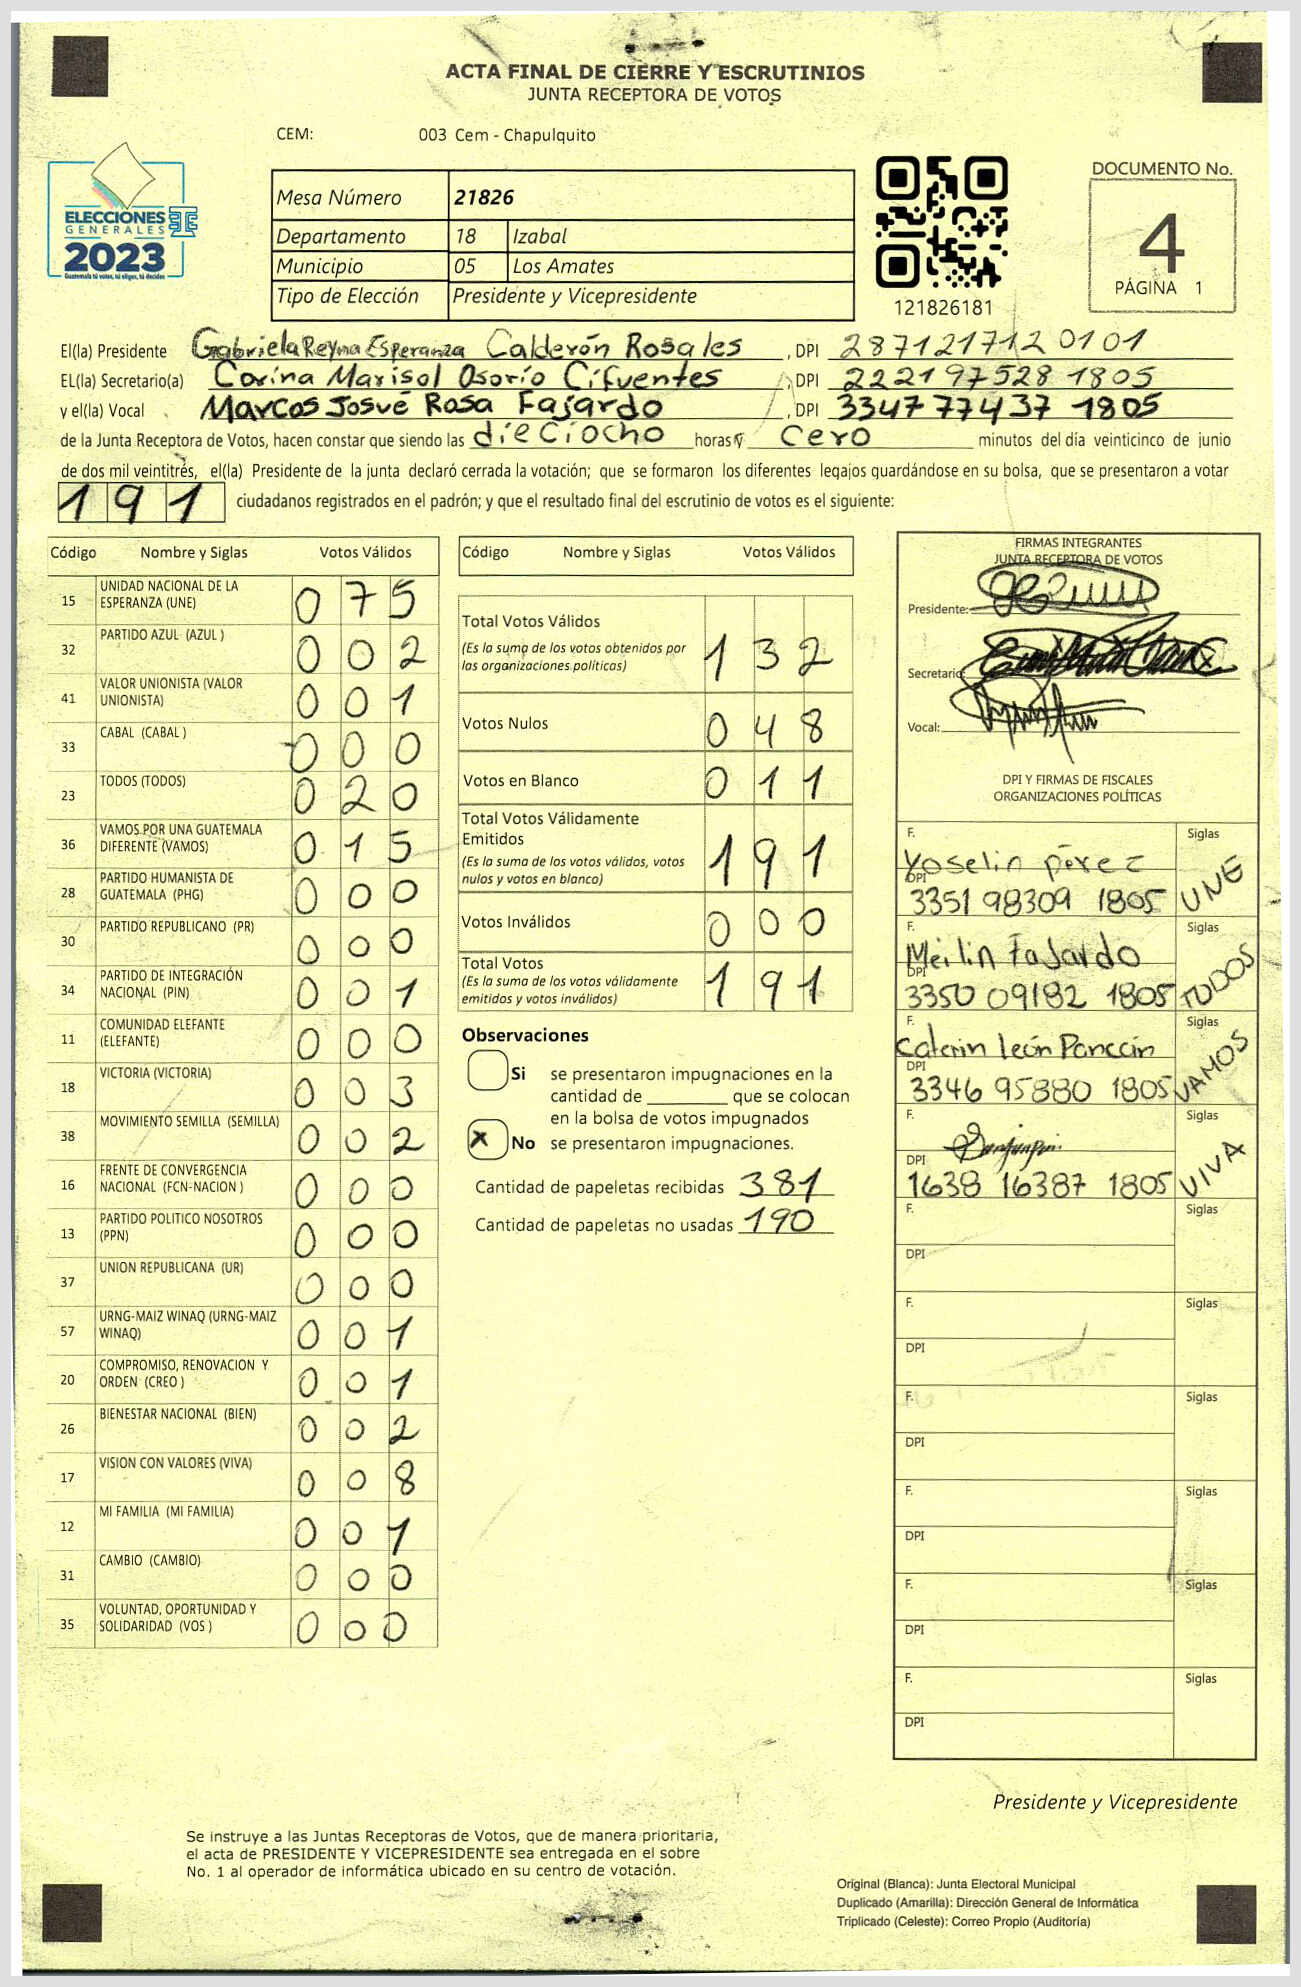 ACTA FINAL DE CIERRE Y ESCRUTINIOS
JUNTA RECEPTORA DE VOTOS
CEM: 003 Cem - Chapulquito
ELECCIONES
GENERALES
2023
Guatemala tú votas, tú eliges, tú decides
Mesa Número 21826
Departamento 18 Izabal
Municipio 05 Los Amates
Tipo de Elección Presidente y Vicepresidente
121826181
DOCUMENTO No.
4
PÁGINA 1
El(la) Presidente Gabriela Reyna Esperanza Calderón Rosales , DPI 287121712 0101
EL(la) Secretario(a) Corina Marisol Osorio Cifuentes , DPI 222197528 1805
y el(la) Vocal Marcos Josué Rosa Fajardo , DPI 3347 77437 1805
de la Junta Receptora de Votos, hacen constar que siendo las dieciocho horas y cero minutos del día veinticinco de junio
de dos mil veintitrés, el(la) Presidente de la junta declaró cerrada la votación; que se formaron los diferentes legajos guardándose en su bolsa, que se presentaron a votar
191 ciudadanos registrados en el padrón; y que el resultado final del escrutinio de votos es el siguiente:
Código Nombre y Siglas Votos Válidos
15 UNIDAD NACIONAL DE LA
ESPERANZA (UNE) 075
32 PARTIDO AZUL (AZUL ) 002
41 VALOR UNIONISTA (VALOR
UNIONISTA) 001
33 CABAL (CABAL ) 000
23 TODOS (TODOS) 020
36 VAMOS POR UNA GUATEMALA
DIFERENTE (VAMOS) 015
28 PARTIDO HUMANISTA DE
GUATEMALA (PHG) 000
30 PARTIDO REPUBLICANO (PR) 000
34 PARTIDO DE INTEGRACIÓN
NACIONAL (PIN) 001
11 COMUNIDAD ELEFANTE
(ELEFANTE) 000
18 VICTORIA (VICTORIA) 003
38 MOVIMIENTO SEMILLA (SEMILLA) 002
16 FRENTE DE CONVERGENCIA
NACIONAL (FCN-NACION ) 000
13 PARTIDO POLITICO NOSOTROS
(PPN) 000
37 UNION REPUBLICANA (UR) 000
57 URNG-MAIZ WINAQ (URNG-MAIZ
WINAQ) 001
20 COMPROMISO, RENOVACION Y
ORDEN (CREO ) 001
26 BIENESTAR NACIONAL (BIEN) 002
17 VISION CON VALORES (VIVA) 008
12 MI FAMILIA (MI FAMILIA) 001
31 CAMBIO (CAMBIO) 000
35 VOLUNTAD, OPORTUNIDAD Y
SOLIDARIDAD (VOS ) 000
Código Nombre y Siglas Votos Válidos
Total Votos Válidos
(Es la suma de los votos obtenidos por
las organizaciones políticas) 132
Votos Nulos 048
Votos en Blanco 011
Total Votos Válidamente
Emitidos
(Es la suma de los votos válidos, votos
nulos y votos en blanco) 191
Votos Inválidos 000
Total Votos
(Es la suma de los votos válidamente
emitidos y votos inválidos) 191
Observaciones
Si se presentaron impugnaciones en la
cantidad de ________ que se colocan
en la bolsa de votos impugnados
x No se presentaron impugnaciones.
Cantidad de papeletas recibidas 381
Cantidad de papeletas no usadas 190
FIRMAS INTEGRANTES
JUNTA RECEPTORA DE VOTOS
Presidente:
Secretario:
Vocal:
DPI Y FIRMAS DE FISCALES
ORGANIZACIONES POLÍTICAS
F. Siglas
Yoselin pérez
DPI
3351 98309 1805 UNE
F. Siglas
Meilin Fajardo
DPI
3350 09182 1805 TODOS
F. Siglas
Caterin León Ponccin
DPI
3346 95880 1805 VAMOS
F. Siglas
DPI
1638 16387 1805 VIVA
F. Siglas
DPI
F. Siglas
DPI
F. Siglas
DPI
F. Siglas
DPI
F. Siglas
DPI
F. Siglas
DPI
Presidente y Vicepresidente
Se instruye a las Juntas Receptoras de Votos, que de manera prioritaria,
el acta de PRESIDENTE Y VICEPRESIDENTE sea entregada en el sobre
No. 1 al operador de informática ubicado en su centro de votación.
Original (Blanca): Junta Electoral Municipal
Duplicado (Amarilla): Dirección General de Informática
Triplicado (Celeste): Correo Propio (Auditoría)